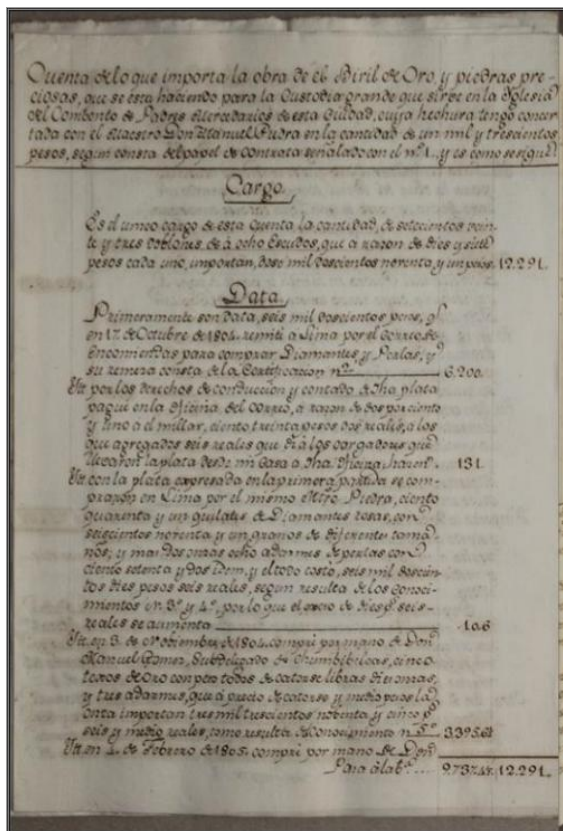 Quenta de lo que importa la obra de el Biril de Oro, y piedras pre-
ciosas, que se está haciendo para la Custodia grande que sirbe en la Yglesia
del Combento de Padres Mercedarios de esta Ciudad, cuya hechura tengo concer-
tada con el Maestro Don Manuel Piedra en la cantidad de un mil y trescientos
pesos, segun consta del papel de Contrata señalado con el nº. 1. y es como se sigue
Cargo.
Es el unico cargo de esta Quenta la cantidad, de setecientos vein-
te y tres doblones, de á ocho Escudos, que a razon de dies y siete
pesos cada uno, importan, dose mil doscientos noventa, y un pesos. 12.291.
Data.
Primeramente son data, seis mil doscientos pesos, qe.
en 17. de Octubre de 1804. remiti a Lima por el Correo de
Encomiendas para comprar Diamantes, y Perlas, y
su remesa consta de la Certificacion nº. 2º. 6.200.
Ytt. por los derechos de conduccion y contado de dha plata
pagué en la Oficina del Correo, á razon de dos por ciento
y uno á el millar, ciento treinta pesos dos reales, á los
que agregados seis reales que dí á los cargadores que
llevaron la plata desde mi Casa a dha Oficina, hacen. 131.
Ytt. con la plata expresada en la primera partida se com-
praron en Lima por el mismo Mtro Piedra, ciento
quarenta y un quilates de Diamantes rosas, con
seiscientos noventa y un granos de diferentes tama-
ños; y mas dos onzas ocho adarmes de perlas con
ciento setenta y dos idem, y el todo costó, seis mil doscien-
tos dies pesos seis reales, segun resulta de los conoci-
mientos nº. 3º. y 4º. por lo que el exceso de dies ps. seis
reales se aumenta 10.6
Ytt. en 3. de Nobiembre de 1804. compré por mano de Don
Manuel Gomes, Subdelegado de Chumbibilcas, cinco
texos de Oro con peso todos de catorse libras dies onzas,
y tres adarmes, que á precio de catorse y medio pesos la
onza importan tres mil trescientos noventa y cinco ps.
seis y medio reales, como resulta del conocimiento nº. 5º. 3395.6½
Ytt. en 1. de Febrero de 1805. compré por mano de Don
Para á la bta. ... 9.737.4½. 12.291.